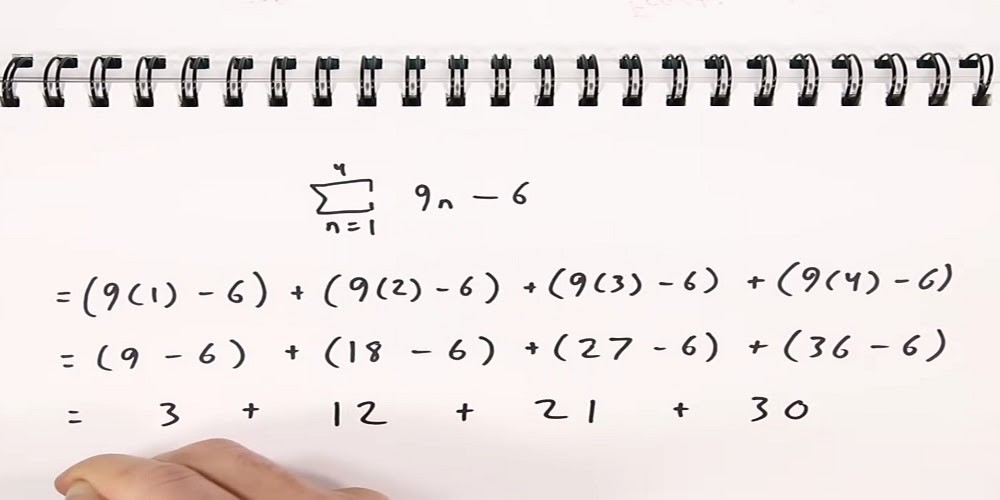 4
∑ 9n - 6
n=1
= (9(1) - 6) + (9(2) - 6) + (9(3) - 6) + (9(4) - 6)
= (9 - 6) + (18 - 6) + (27 - 6) + (36 - 6)
= 3 + 12 + 21 + 30